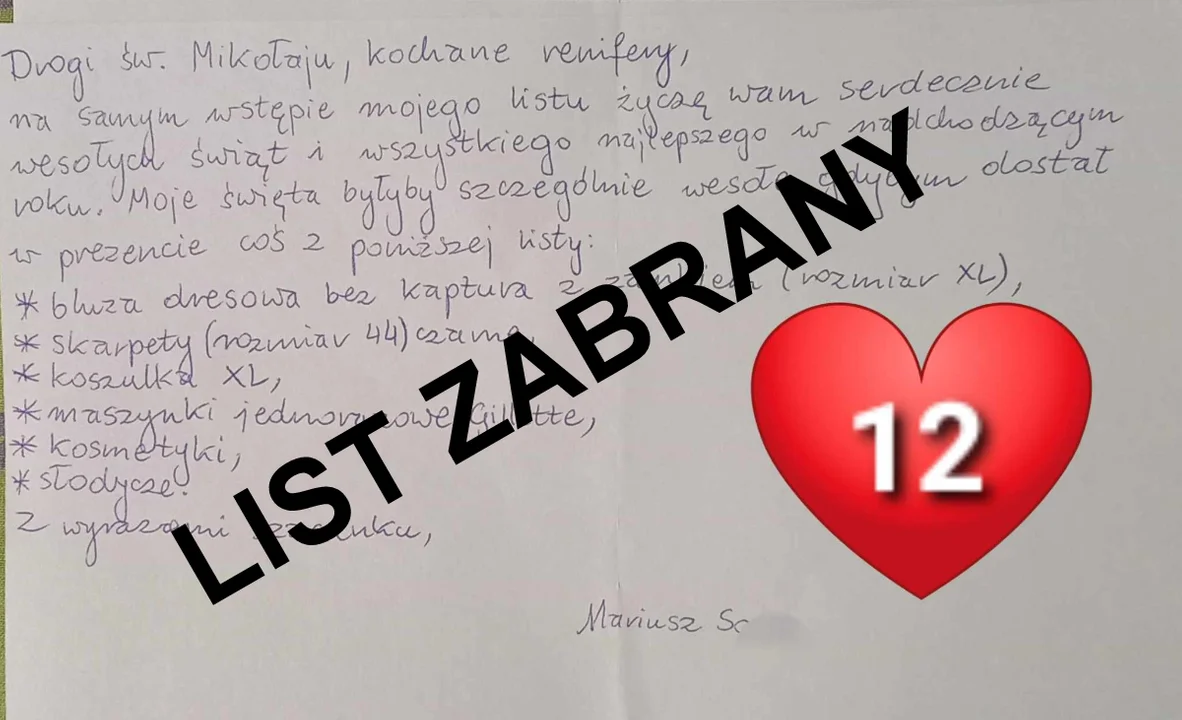 Drogi św. Mikołaju, kochane renifery,
na samym wstępie mojego listu życzę wam serdecznie
wesołych świąt i wszystkiego najlepszego w nadchodzącym
roku. Moje święta byłyby szczególnie wesołe gdybym dostał
w prezencie coś z poniższej listy:
* bluza dresowa bez kaptura z zamkiem (rozmiar XL),
* skarpety (rozmiar 44) czarne,
* koszulka XL,
* maszynki jednorazowe Gillette,
* kosmetyki,
* słodycze!
Z wyrazami szacunku,
Mariusz Sc
LIST ZABRANY
12